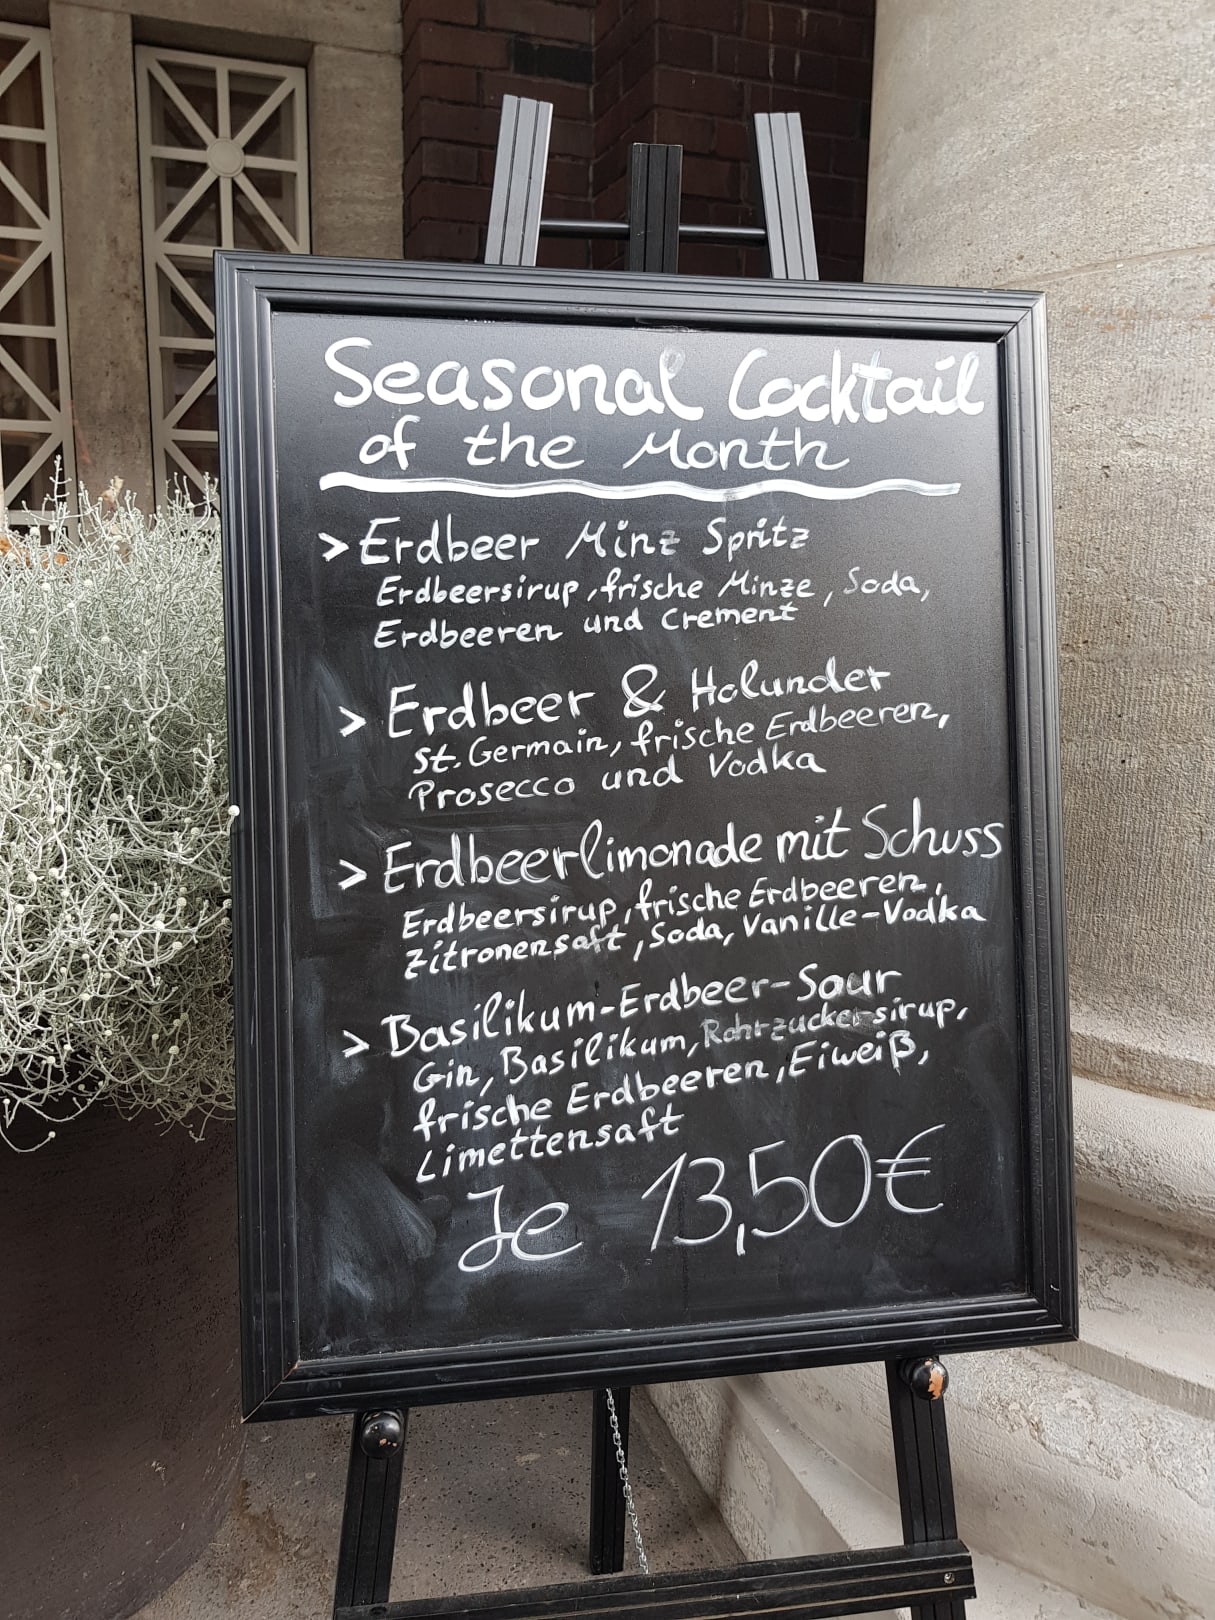 Seasonal Cocktail
of the Month
> Erdbeer Minz Spritz
Erdbeersirup, frische Minze, Soda,
Erdbeeren und Crement
> Erdbeer & Holunder
St. Germain, frische Erdbeeren,
Prosecco und Vodka
> Erdbeerlimonade mit Schuss
Erdbeersirup, frische Erdbeeren,
Zitronensaft, Soda, Vanille-Vodka
> Basilikum-Erdbeer-Sour
Gin, Basilikum, Rohrzuckersirup,
frische Erdbeeren, Eiweiß,
Limettensaft
Je 13,50€